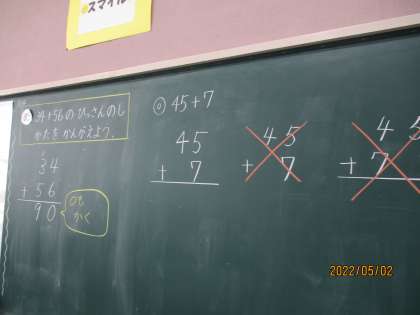 スマイル
34+56のひっさんのし
かたをかんがえよう。
34
+56
90
0も
かく
◎ 45+7
45
+ 7
45
+ 7
45
+ 7
2022/05/02